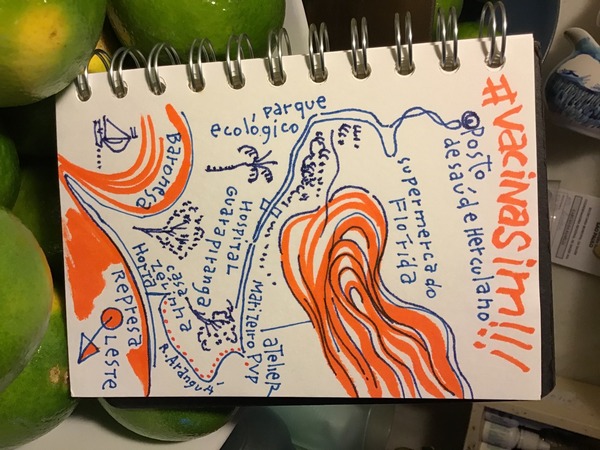 #vacinasim!!!
Posto de
saúde Herculano
supermercado
Florida
parque
ecológico
Hospital
Guarapiranga
Baronesa
casa
Zelinha
Horta
Manzerro PVP
atelier
R. Aranguá
Represa
LESTE